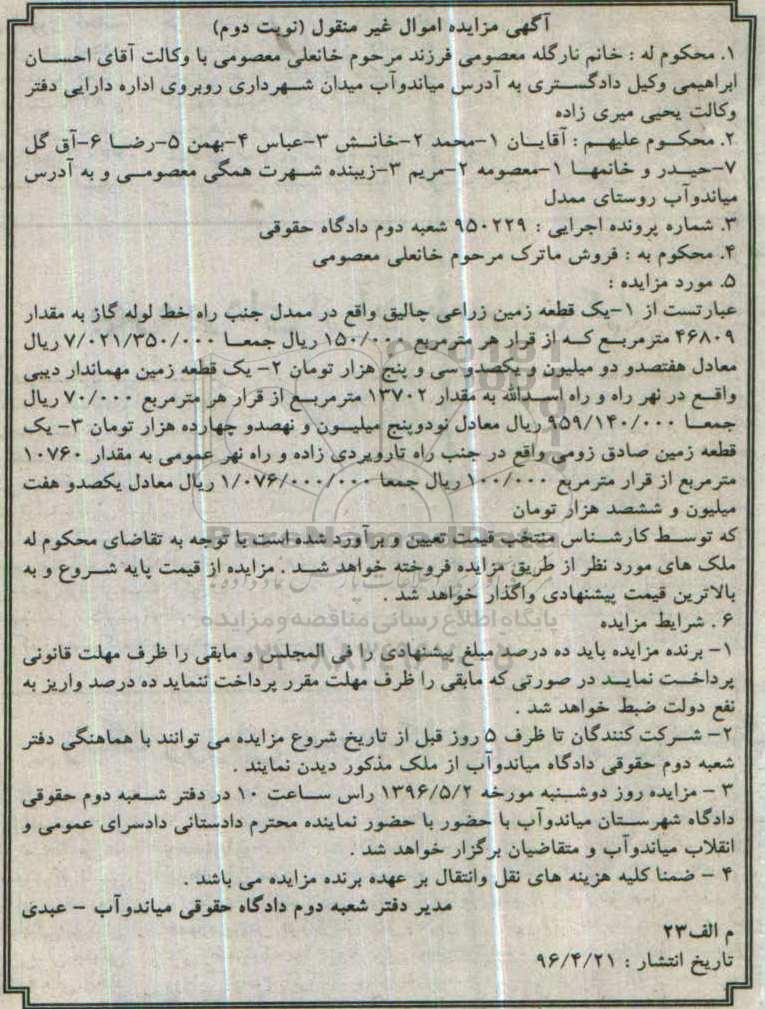 آگهی مزایده اموال غیر منقول (نوبت دوم)
۱. محکوم له : خانم نارگله معصومی فرزند مرحوم خانعلی معصومی با وکالت آقای احسان
ابراهیمی وکیل دادگستری به آدرس میاندوآب میدان شهرداری روبروی اداره دارایی دفتر
وکالت یحیی میری زاده
۲. محکوم علیهم : آقایان ۱-محمد ۲-خانش ۳-عباس ۴-بهمن ۵-رضا ۶-آق گل
۷-حیدر و خانمها ۱-معصومه ۲-مریم ۳-زیبنده شهرت همگی معصومی و به آدرس
میاندوآب روستای ممدل
۳. شماره پرونده اجرایی : ۹۵۰۲۲۹ شعبه دوم دادگاه حقوقی
۴. محکوم به : فروش ماترک مرحوم خانعلی معصومی
۵. مورد مزایده :
عبارتست از ۱-یک قطعه زمین زراعی چالیق واقع در ممدل جنب راه خط لوله گاز به مقدار
۴۶۸۰۹ مترمربع که از قرار هر مترمربع ۱۵۰/۰۰۰ ریال جمعا ۷/۰۲۱/۳۵۰/۰۰۰ ریال
معادل هفتصدو دو میلیون و یکصدو سی و پنج هزار تومان ۲- یک قطعه زمین مهماندار دیبی
واقع در نهر راه و راه اسدالله به مقدار ۱۳۷۰۲ مترمربع از قرار هر مترمربع ۷۰/۰۰۰ ریال
جمعا ۹۵۹/۱۴۰/۰۰۰ ریال معادل نودوپنج میلیون و نهصدو چهارده هزار تومان ۳- یک
قطعه زمین صادق زومی واقع در جنب راه تارویردی زاده و راه نهر عمومی به مقدار ۱۰۷۶۰
مترمربع از قرار مترمربع ۱۰۰/۰۰۰ ریال جمعا ۱/۰۷۶/۰۰۰/۰۰۰ ریال معادل یکصدو هفت
میلیون و ششصد هزار تومان
که توسط کارشناس منتخب قیمت تعیین و برآورد شده است با توجه به تقاضای محکوم له
ملک های مورد نظر از طریق مزایده فروخته خواهد شد . مزایده از قیمت پایه شروع و به
بالاترین قیمت پیشنهادی واگذار خواهد شد .
۶ . شرایط مزایده
۱- برنده مزایده باید ده درصد مبلغ پیشنهادی را فی المجلس و مابقی را ظرف مهلت قانونی
پرداخت نماید در صورتی که مابقی را ظرف مهلت مقرر پرداخت ننماید ده درصد واریز به
نفع دولت ضبط خواهد شد .
۲- شرکت کنندگان تا ظرف ۵ روز قبل از تاریخ شروع مزایده می توانند با هماهنگی دفتر
شعبه دوم حقوقی دادگاه میاندوآب از ملک مذکور دیدن نمایند .
۳ - مزایده روز دوشنبه مورخه ۱۳۹۶/۵/۲ راس ساعت ۱۰ در دفتر شعبه دوم حقوقی
دادگاه شهرستان میاندوآب با حضور با حضور نماینده محترم دادستانی دادسرای عمومی و
انقلاب میاندوآب و متقاضیان برگزار خواهد شد .
۴ - ضمنا کلیه هزینه های نقل وانتقال بر عهده برنده مزایده می باشد .
مدیر دفتر شعبه دوم دادگاه حقوقی میاندوآب - عبدی
م الف۲۳
تاریخ انتشار : ۹۶/۴/۲۱
ParsNamadData
پایگاه اطلاع رسانی مناقصه و مزایده